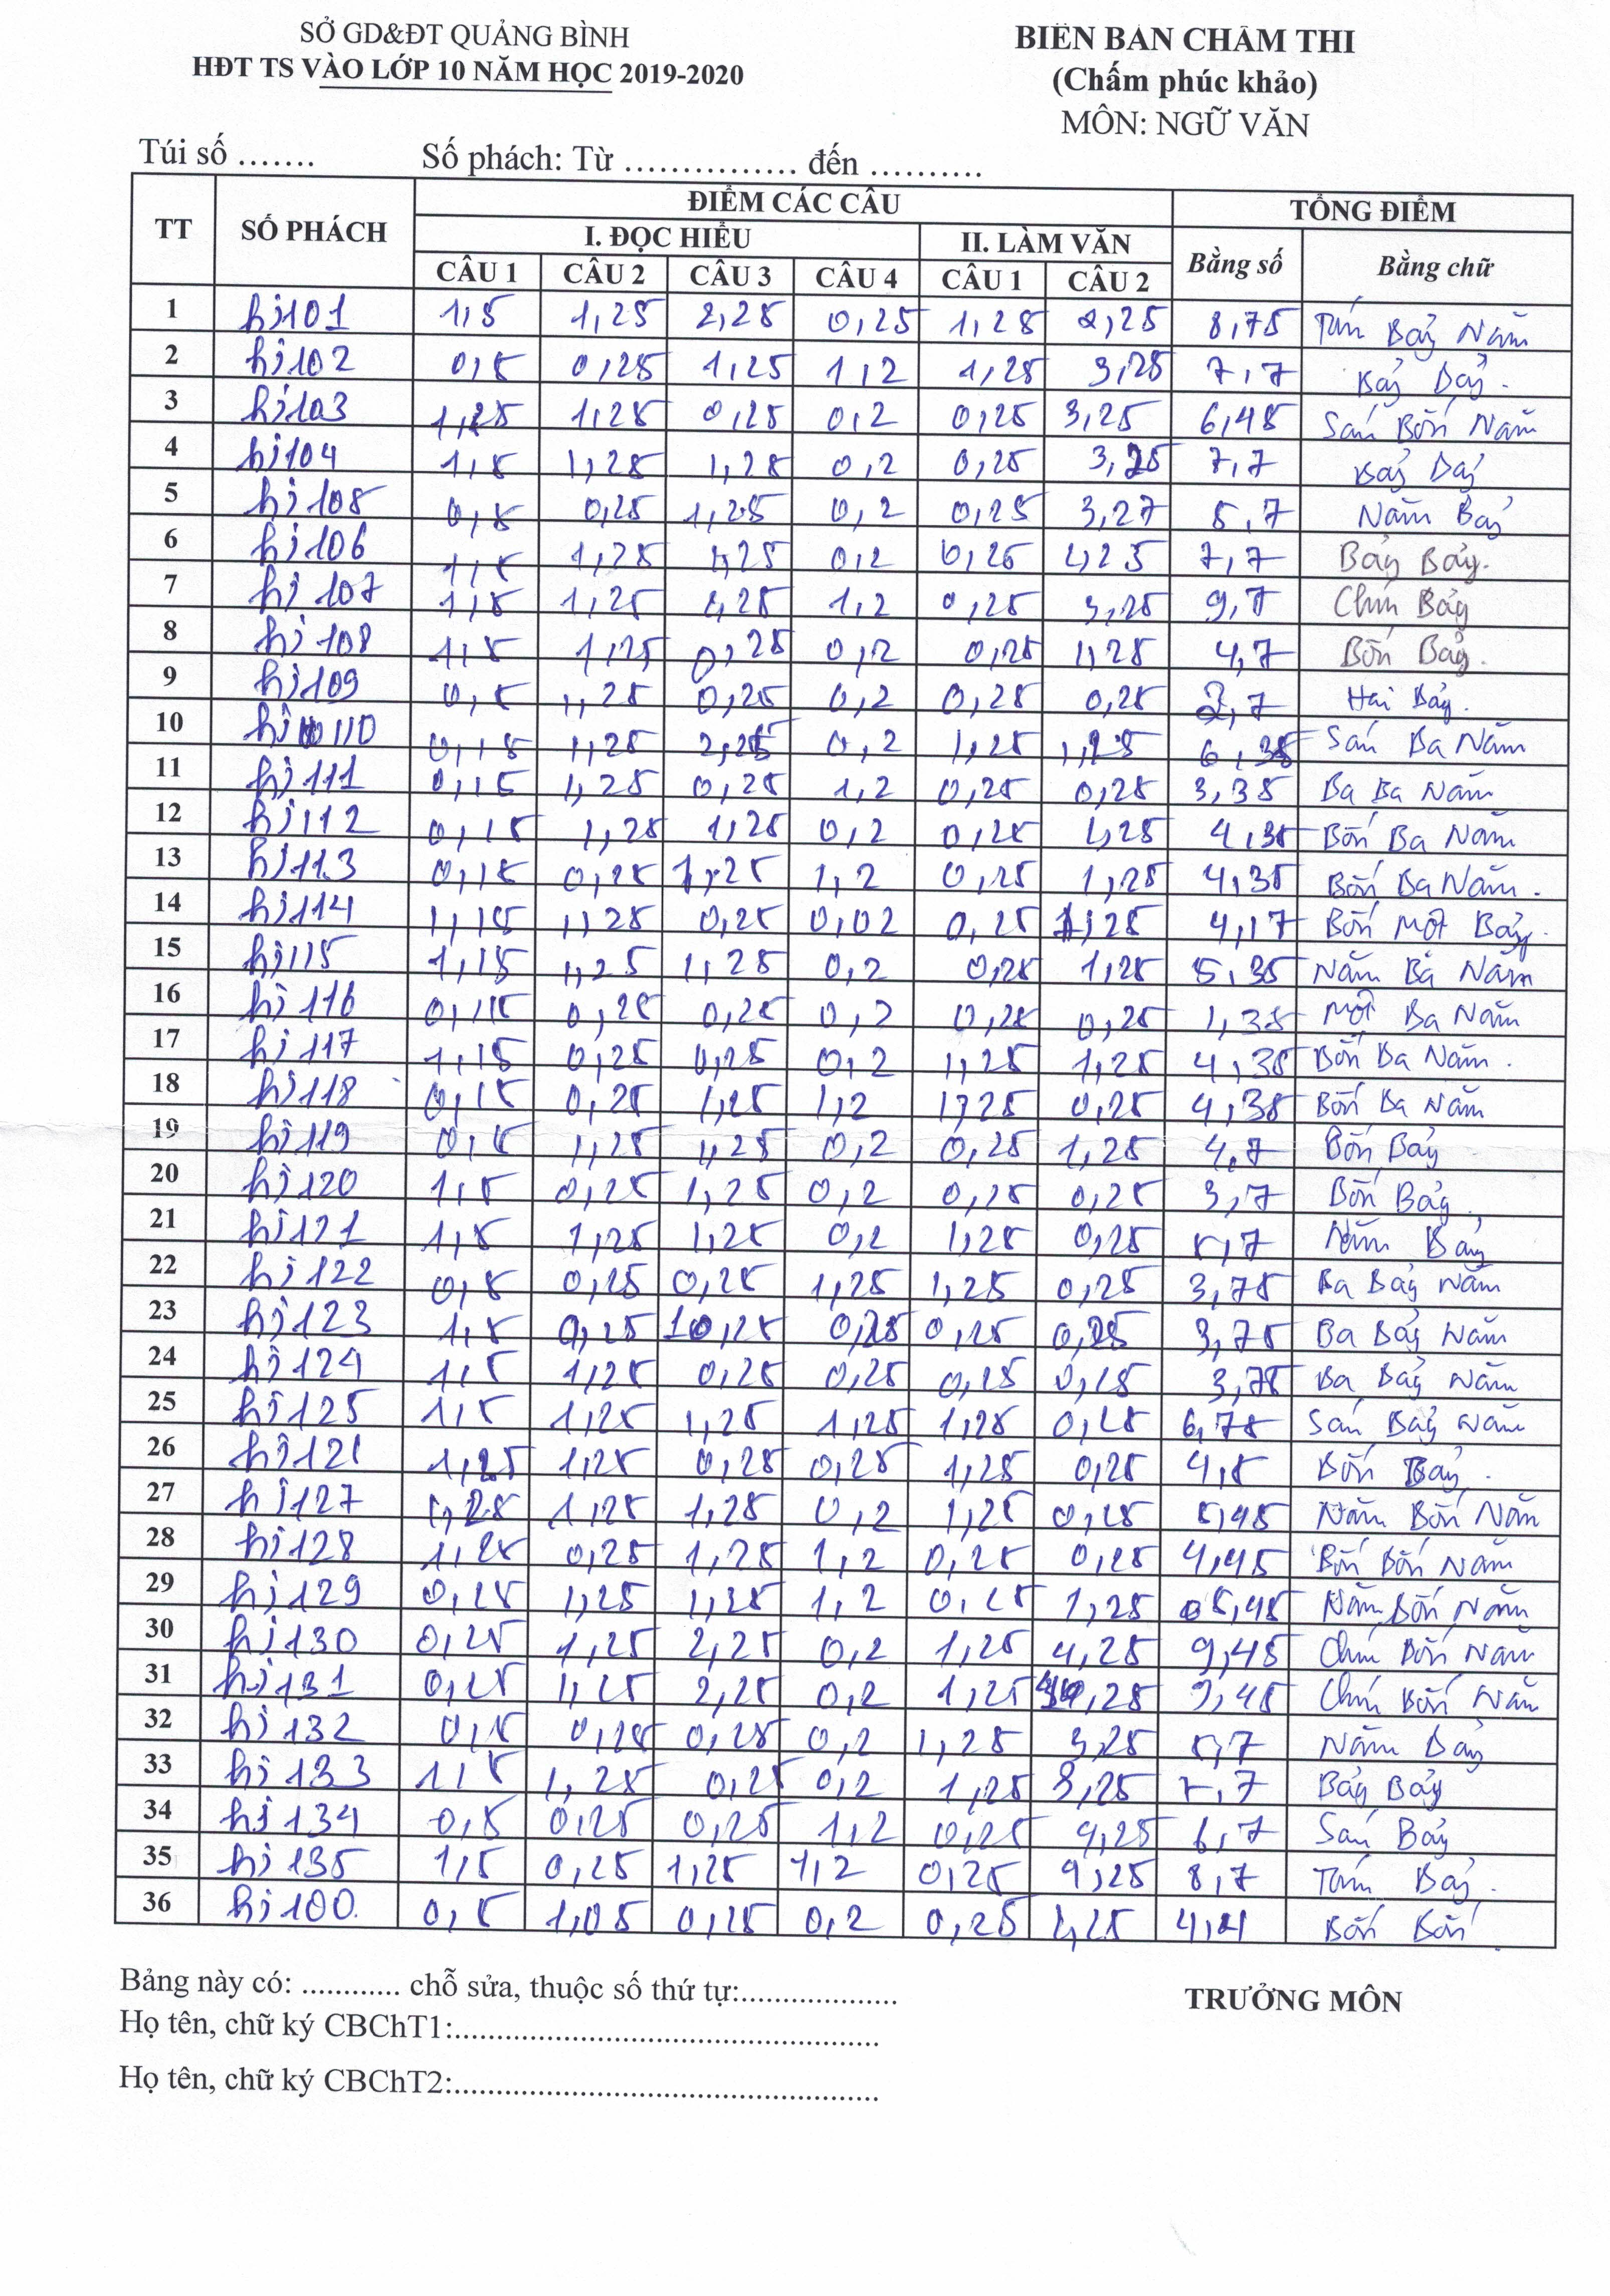 SỞ GD&ĐT QUẢNG BÌNH
HĐT TS VÀO LỚP 10 NĂM HỌC 2019-2020
BIÊN BẢN CHẤM THI
(Chấm phúc khảo)
MÔN: NGỮ VĂN
Túi số ....... Số phách: Từ ............... đến ..........
TT SỐ PHÁCH ĐIỂM CÁC CÂU TỔNG ĐIỂM
I. ĐỌC HIỂU II. LÀM VĂN Bằng số Bằng chữ
CÂU 1 CÂU 2 CÂU 3 CÂU 4 CÂU 1 CÂU 2
1 hj101 1,5 1,25 2,25 0,25 1,25 2,25 8,75 Tám Bảy Năm
2 hj102 0,5 0,25 1,25 1,2 1,25 3,25 7,7 Bảy Bảy.
3 hj103 1,25 1,25 0,25 0,2 0,25 3,25 6,45 Sáu Bốn Năm
4 hj104 1,5 1,25 1,25 0,2 0,25 3,25 7,7 Bảy Bảy
5 hj105 0,5 0,25 1,25 0,2 0,25 3,27 5,7 Năm Bảy
6 hj106 1,5 1,25 1,25 0,2 0,25 2,25 7,7 Bảy Bảy.
7 hj107 1,5 1,25 2,25 1,2 0,25 3,25 9,7 Chín Bảy
8 hj108 1,5 1,25 0,25 0,2 0,25 1,25 4,7 Bốn Bảy.
9 hj109 0,5 1,25 0,25 0,2 0,25 0,25 2,7 Hai Bảy.
10 hj110 0,15 1,25 2,25 0,2 1,25 1,25 6,35 Sáu Ba Năm
11 hj111 0,15 1,25 0,25 1,2 0,25 0,25 3,35 Ba Ba Năm
12 hj112 0,15 1,25 1,25 0,2 0,25 1,25 4,35 Bốn Ba Năm
13 hj113 0,15 0,25 1,25 1,2 0,25 1,25 4,35 Bốn Ba Năm.
14 hj114 1,15 1,25 0,25 0,02 0,25 1,25 4,17 Bốn Một Bảy.
15 hj115 1,15 1,25 1,25 0,2 0,25 1,25 5,35 Năm Ba Năm
16 hj116 0,15 0,25 0,25 0,2 0,25 0,25 1,35 Một Ba Năm
17 hj117 1,15 0,25 0,25 0,2 1,25 1,25 4,35 Bốn Ba Năm.
18 hj118 0,15 0,25 1,25 1,2 1,25 0,25 4,35 Bốn Ba Năm
19 hj119 0,5 1,25 1,25 0,2 0,25 1,25 4,7 Bốn Bảy
20 hj120 1,5 0,25 1,25 0,2 0,25 0,25 3,7 Bốn Bảy.
21 hj121 1,5 1,25 1,25 0,2 1,25 0,25 5,7 Năm Bảy
22 hj122 0,5 0,25 0,25 1,25 1,25 0,25 3,75 Ba Bảy Năm
23 hj123 1,5 0,25 10,25 0,25 0,25 0,25 3,75 Ba Bảy Năm
24 hj124 1,5 1,25 0,25 0,25 0,25 0,25 3,75 Ba Bảy Năm
25 hj125 1,5 1,25 1,25 1,25 1,25 0,25 6,75 Sáu Bảy Năm
26 1,25 1,25 0,25 0,25 1,25 0,25 4,5 Bốn Bảy.
27 hj127 1,25 1,25 1,25 0,2 1,25 0,25 5,45 Năm Bốn Năm
28 hj128 1,25 0,25 1,25 1,2 0,25 0,25 4,45 Bốn Bốn Năm
29 hj129 0,25 1,25 1,25 1,2 0,25 1,25 5,45 Năm Bốn Năm
30 hj130 0,25 1,25 2,25 0,2 1,25 4,25 9,45 Chín Bốn Năm
31 hj131 0,25 1,25 2,25 0,2 1,25 4,25 9,45 Chín Bốn Năm
32 hj132 0,5 0,25 0,25 0,2 1,25 3,25 5,7 Năm Bảy
33 hj133 1,5 1,25 0,25 0,2 1,25 3,25 7,7 Bảy Bảy
34 hj134 0,5 0,25 0,25 1,2 0,25 4,25 6,7 Sáu Bảy
35 hj135 1,5 0,25 1,25 1,2 0,25 4,25 8,7 Tám Bảy.
36 hj100. 0,5 1,05 0,25 0,2 0,25 2,25 4,4 Bốn Bốn
Bảng này có: ............ chỗ sửa, thuộc số thứ tự:...................
TRƯỞNG MÔN
Họ tên, chữ ký CBChT1:....................................................
Họ tên, chữ ký CBChT2:....................................................